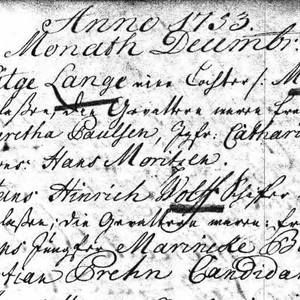 Anno 1753.
Monath Decembr
Lange eine Tochter /: M
laßen, die Gevattern waren Fr
Paulsen, Jgfr: Cathari
Hans Moritsen.
Hinrich Wolff
laßen; die Gevattern waren: Fr
Jungfer Marinecke B
Prehn Candida